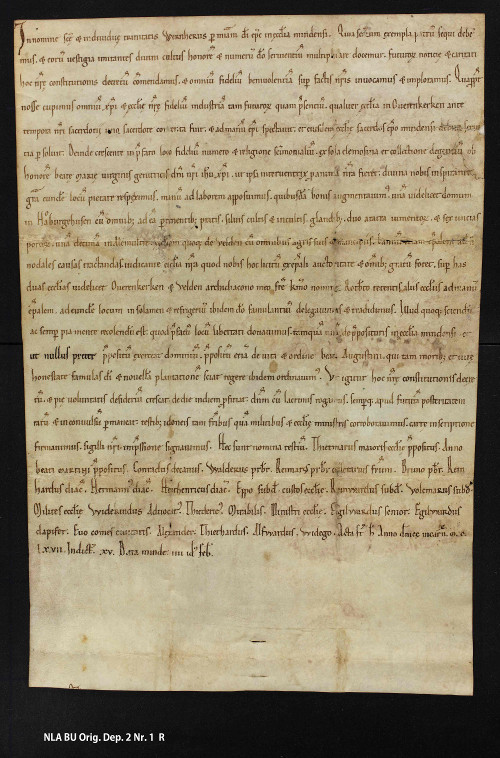 In nomine scę & individuę trinitatis Wernherus p miam di epc mindensis. Qua scdm exempla patru sequi debe
mus, & eoru vestigia imitantes divini cultus honore & numeru do servientiu multiplicare docemur, futuroȝ noticie & caritati
hoc nrę constitutionis decretu comendamus, & omniu fideliu benivolentia sup factis nris invocamus & imploramus.
nosse cupimus omniu xpi & ecclie nrę fideliu industria tam futuroȝ quam psentiu, qualiter ecclia in Overenkerken ante
tempora nri sacerdotii sacerdote contenta fuit, & ad manu epi spectavit, & eiusdem ecclie sacerdos epo mindensi
ria psoluit. Deinde crescente in pfato loco fideliu numero & religione scimonialiu, ex sola elemosina & collectione degentiu, ob
honore beate marie virginis genitricis dni nri ihu xpi, ut ipsa interveniente
gra eunde locu pietate respeximus, manu ad laborem apposuimus, quibusda bonis augmentavim, una videlicet domum
in Haburgehusen cu omnib ad ea ptinentib, pratis, silvis cultis & incultis, glandib, duo aratra iumentoȝ, & sex
porcos, una decima in quoq de velden cu omnibus agris suis & mancipiis,
nodales causas tractandas iudicante ecclia nra quod nobis hoc licitu exepli auctoritate & omnib gratu foret, sup has
duas ecclias videlicet Overenkerken & Velden archidiacono men fre kmo nomine Rotbto retentis, aliis ecclie ad manu
epalem, ad eunde locum in solamen & refrigeriu ibidem do famulantiu delegavimus & tradidimus. Illud quoq sciendu
ac semp pia mente recolendu est, quod pfatu locu libertati donavimus, tamqua ppositis in ecclia mindensi. &
ut nullus preter ppositu exerceat dominiu, ppositu etia de vita & ordine beati Augustini, qui tam morib & vitę
honestate famulas di & novella plantatione sciat regere ibidem ordinavim. Ut igitur hoc nrę constitutionis decre
tu, & pie voluntatis desideriu crescat, de die in diem pficiat, diuiu cu lucrimis rogatus, sempq apud futura posteritatem
ratu & inconvulsu pmaneat, testib idoneis tam fratribus qua militibus & ecclie ministris corroboravimus, carte inscriptione
firmavimus, sigilli nri impssione signavimus. Hec sunt nomina testiu. Thietmarus maioris ecclie ppositus. Anno
beati martini ppositus. Conradus decanus. Waldericus prbr. Reimarus prbr frum. Bruno pbr. Rein
hardus diac. Hermann diac. Heinricus diac. Eppo subd. custos ecclie. Reinwardus subd. Volcmarus subd.
Milites ecclie Widekindus Advocat. Thederic. Mirabilis. Ministri ecclie. Egilwardus senior. Egilwardus
dapifer. Evo comes civitatis. Alexander. Thiethardus. Alfwardus. Widego. Acta st h Anno dnice incarn. m. c.
lxvii. Indict. xv. Data minde. iiii id feb.
NLA BU Orig. Dep. 2 Nr. 1 R